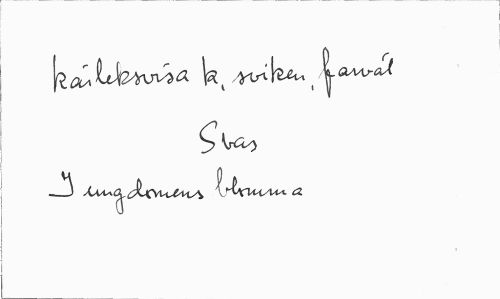 kärleksvisa k, sviken, farväl
Svas
I ungdomens blomma